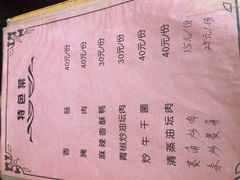 特色菜
香肠 40元/份
腌肉 40元/份
麻辣香酥鸭 30元/份
青椒炒油坛肉 40元/份
炒牛干菌 30元/份
清蒸油坛肉 40元/份
35元/份
25元/份